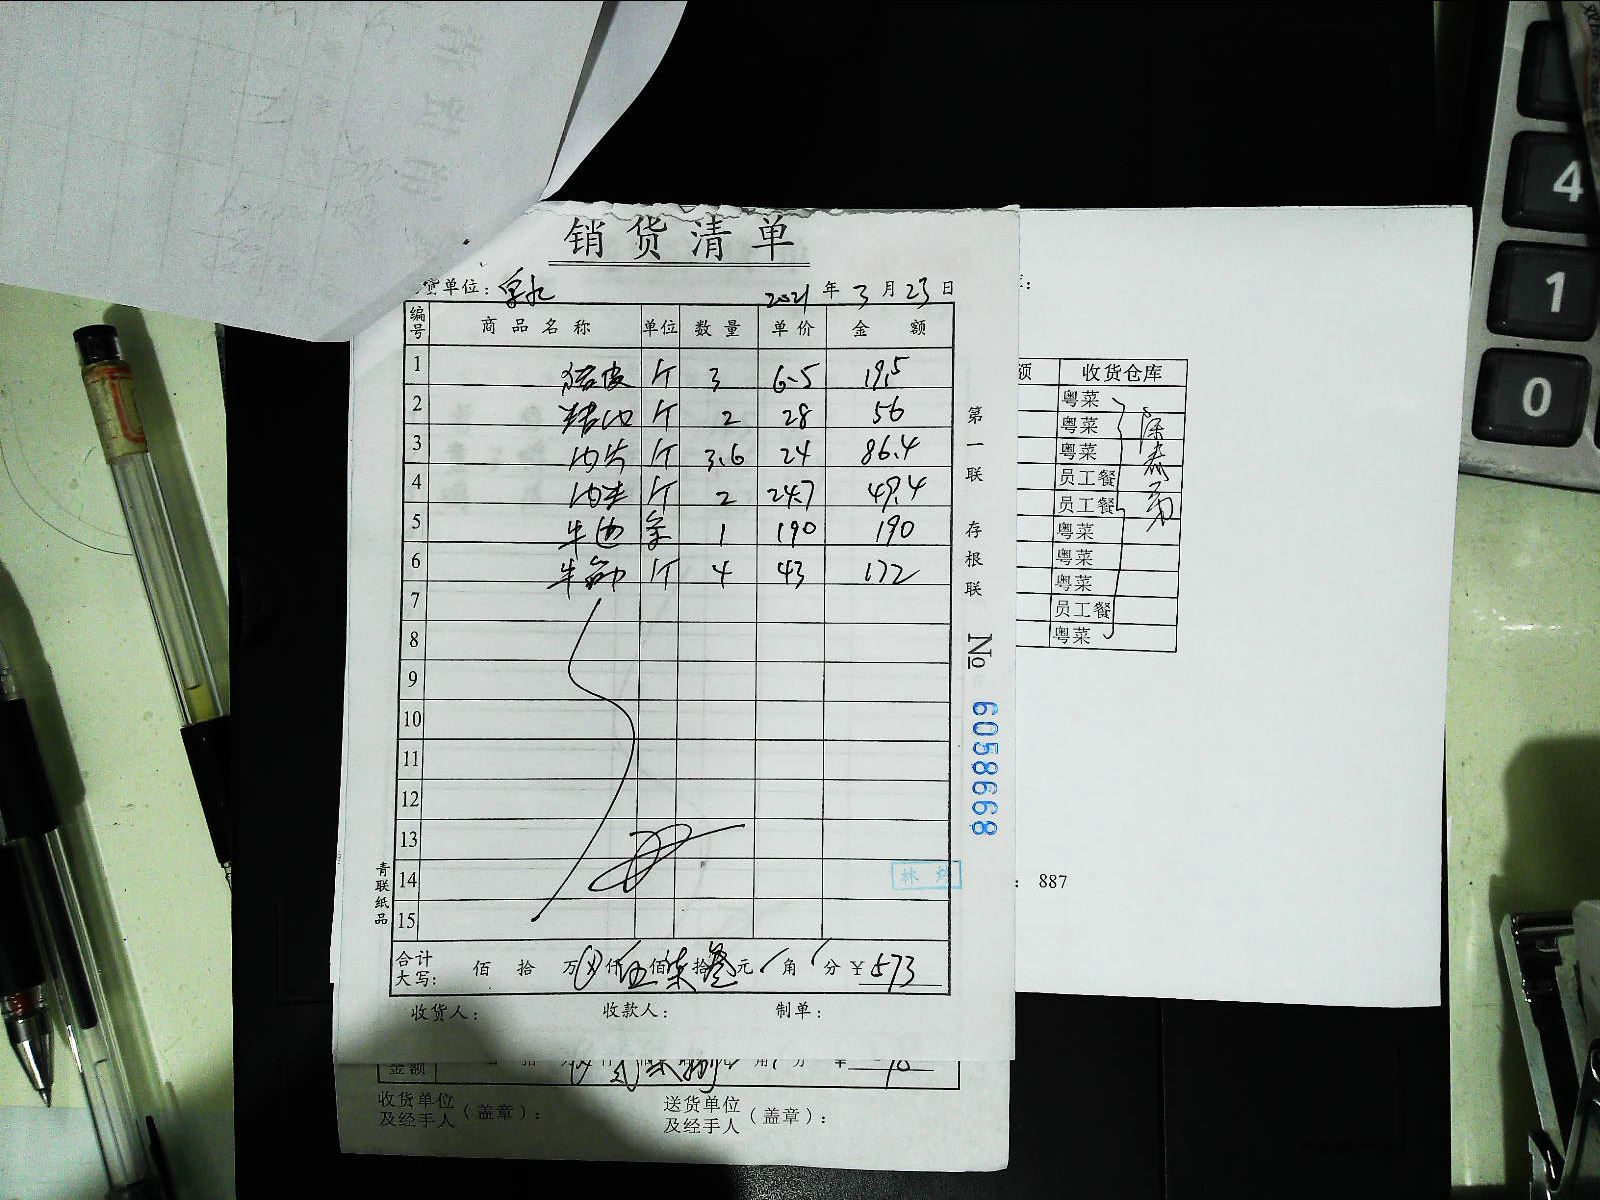 销货清单
单位：泉水 2021年3月23日
编号 商品名称 单位 数量 单价 金额
1 猪皮 斤 3 6.5 19.5
2 斤 2 28 56
3 肉片 斤 3.6 24 86.4
4 斤 2 24.7 49.4
5 1 190 190
6 斤 4 43 172
7
8
9
10
11
12
13
14
15
合计大写： 佰 拾 万 仟 伍 佰 柒 拾 叁 元 角 分 ¥573
收货人： 收款人： 制单：
青联纸品
第一联 存根联
№ 6058668
额 收货仓库
粤菜
粤菜
粤菜
员工餐
员工餐
粤菜
粤菜
粤菜
员工餐
粤菜
：887
金额
收货单位及经手人（盖章）： 送货单位及经手人（盖章）：
4
1
0